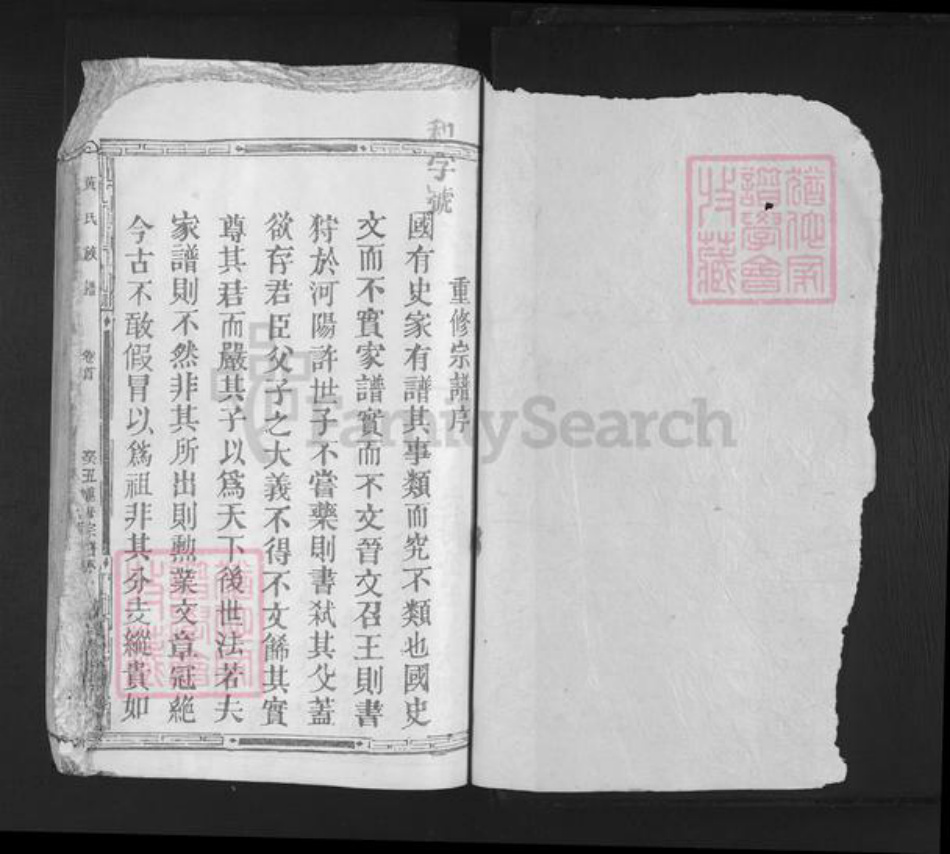 和字號
重修宗譜序
國有史家有譜其事類而究不類也國史
文而不實家譜實而不文晉文召王則書
狩於河陽許世子不嘗藥則書弑其父蓋
欲存君臣父子之大義不得不文餙其實
尊其君而嚴其子以爲天下後世法若夫
家譜則不然非其所出則勲業文章冠絶
今古不敢假冒以爲祖非其分支縱貴如
黄氏族譜
卷首
癸丑重修
FamilySearch
譜學會
收藏